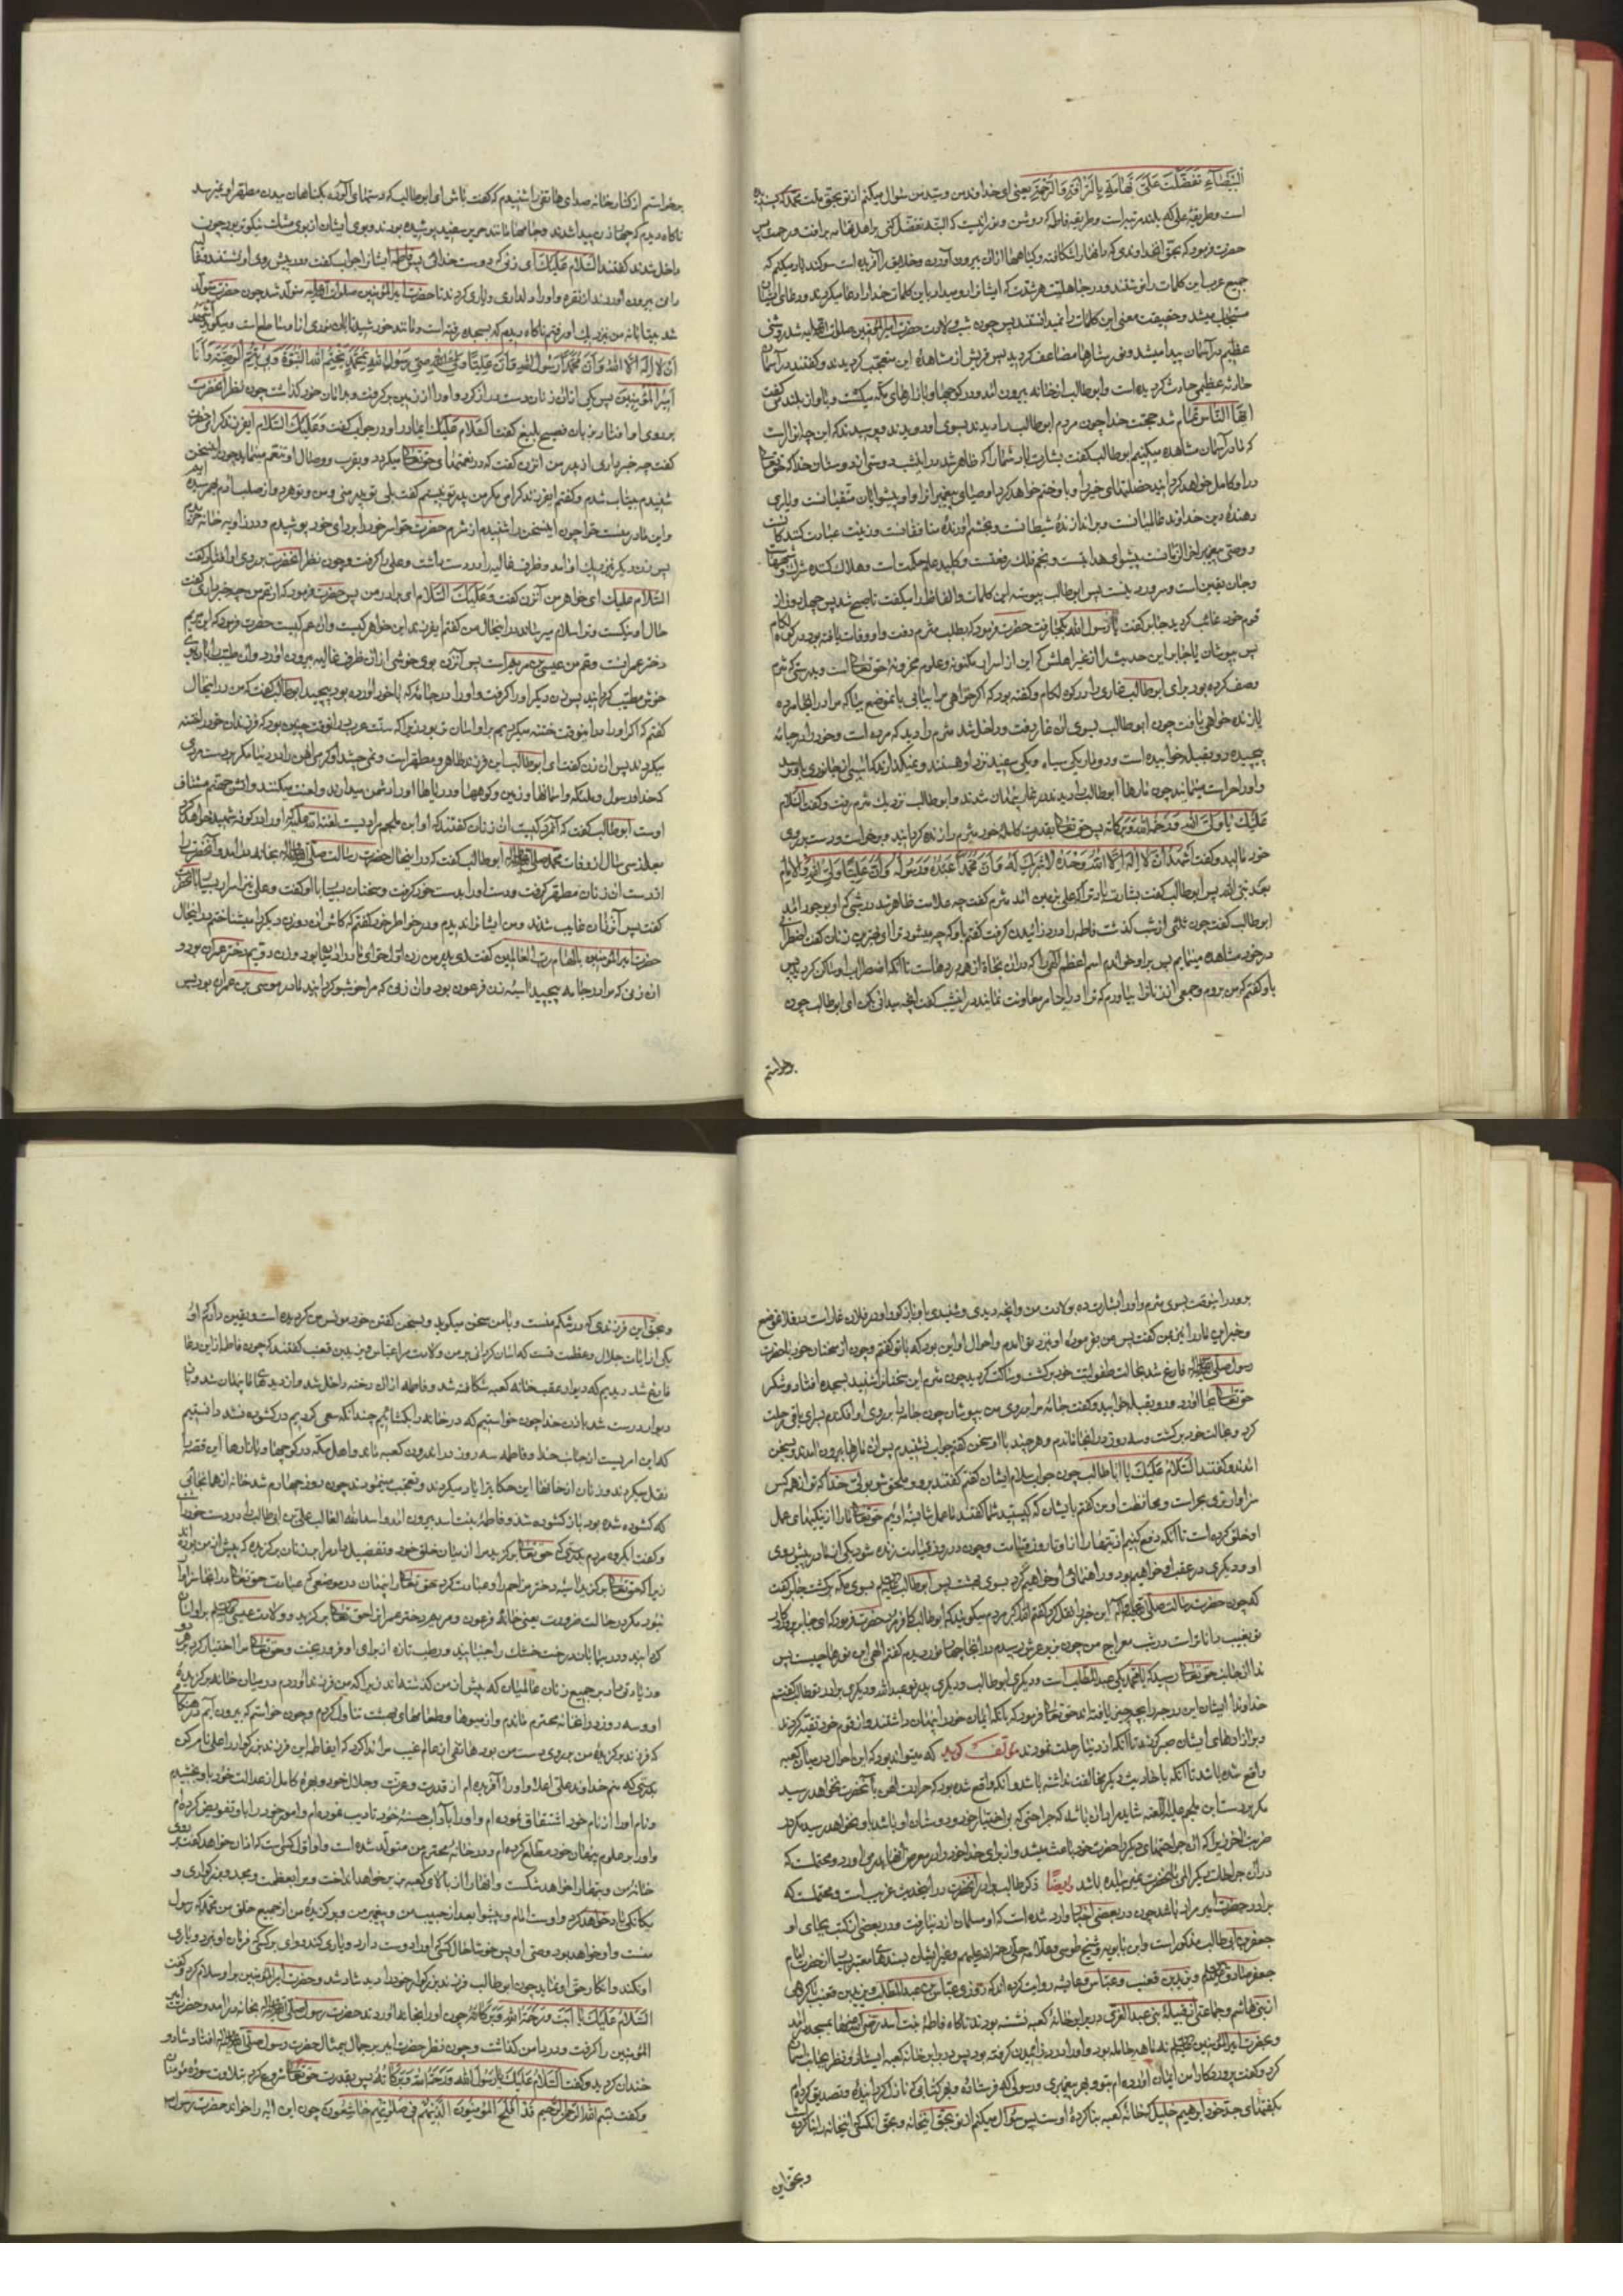 البیضاء تفضلت علی تهامة بالرافة والرحمة یعنی ای خداوند من و سید من سؤال میکنم از تو بحق ملت محمد که پسندیده
است و طریقهٔ علی که بلند مرتبه است و طریقهٔ فاطمه که روشن و نورانیست که البته تفضل کنی بر اهل تهامه برافت و رحمت پس
حضرت فرمود که بحق آنخداوندی که دانه را شکافته و گیاهها از آن بیرون آورده و خلایق را آفریده است سوگند یاد میکنم که
جمیع عرب این کلمات را نوشتند و در جاهلیت هر شدت که ایشانرا رو میداد باین کلمات خدا را دعا میکردند و دعای ایشان
مستجاب میشد و حقیقت معنی این کلمات را نمیدانستند پس چون شب ولادت حضرت امیرالمؤمنین صلوات الله علیه شد روشنی
عظیم در آسمان پیدا میشد و نور ستارها مضاعف گردید پس قریش از مشاهدهٔ این متعجب گردیدند و گفتند در آسمان
حادثهٔ عظیمی حادث گردیده است و ابوطالب از خانه بیرون آمد و در کوچها و بازارهای مکه میگشت و بآواز بلند میگفت
ایها الناس تمام شد حجت خدا چون مردم ابوطالب را دیدند بسوی او دویدند و پرسیدند که این چه انوار است
که ما در آسمان مشاهده میکنیم ابوطالب گفت بشارت باد شما را که ظاهر شد در اینشب دوستی از دوستان خدا که حق تعالی
در او کامل خواهد گردانید خصلتهای خیر را و باو ختم خواهد کرد اوصیای پیغمبرانرا و او پیشوای متقیانست و یاری
دهندهٔ دین خداوند عالمیانست و براندازندهٔ شیطانست و بخشم آورندهٔ منافقانست و زینت عبادت کنندگانست
و وصی پیغمبر آخر الزمانست پیشوای هدایتست و نجم فلک رفعتست و کلید علم حکمت است و هلاک کننده شرک و شبههاست
و جان یقین است و سرور دینست پس ابوطالب پیوسته این کلمات و الفاظ را میگفت تا صبح شد پس چهل روز از
قوم خود غائب گردید جابر گفت یا رسول الله بکجا رفت حضرت فرمود که بطلب مثرم رفت و او وفات یافته بود در کوه لکام
پس بپوشان یا جابر این حدیث را از غیر اهلش که این از اسرار مکنونه و علوم مخزونهٔ حق تعالی است و بدرستی که مثرم
وصف کرده بود برای ابوطالب غاری را در کوه لکام و گفته بود که اگر خواهی مرا بیابی بانموضع بیا که مرا در انجا مرده
یا زنده خواهی یافت چون ابوطالب بسوی آن غار رفت و داخل شد مثرم را دید که مرده است و خود را در جامه
پیچیده رو بقبله خوابیده است و دو مار یکی سیاه و یکی سفید نزد او هستند و نمیگذارند که آسیبی از جانوری باو برسد
و او را حراست مینمایند چون مارها ابوطالب را دیدند در غار پنهان شدند و ابوطالب نزدیک مثرم رفت و گفت السلام
علیک یا ولی الله و رحمة الله و برکاته پس حق تعالی بقدرت کاملهٔ خود مثرم را زنده گردانید و برخواست و دست بر روی
خود مالید و گفت اشهد ان لا اله الا الله وحده لا شریک له و ان محمدا عبده و رسوله و ان علیا ولی الله و الامام
بعد نبی الله پس ابوطالب گفت بشارت باد ترا که علی بزمین آمد مثرم گفت چه علامت ظاهر شد در شبی که او بوجود آمد
ابوطالب گفت چون ثلثی از شب گذشت فاطمه را درد زائیدن گرفت گفتم باو که چه میشود ترا ای بهترین زنان گفت اضطرابی
در خود مشاهده مینمایم پس بر او خواندم اسم اعظم الهی را که در آن نجاة از هر درد هاست تا آنکه اضطراب او ساکن گردید پس
باو گفتم که من بروم و جمعی از زنانرا بیاورم که ترا در این امر معاونت نمایند در اینشب گفت آنچه میدانی بکن ای ابوطالب چون
برخواستم
برخواستم از کنار خانه صدای هاتفی را شنیدم که گفت باش ای ابوطالب که دستهای آلوده بگناهان ببدن مطهر او نمیرسد
ناگاه دیدم که چهار زن پیدا شدند و جامها مانند حریر سفید پوشیده بودند و بوی ایشان از بوی مشک نیکوتر بود چون
داخل شدند گفتند السلام علیک ای زنی که دوست خدائی پس فاطمه ایشانرا جواب گفت و در پیش روی او نشستند
شد بیتابانه من نزدیک او رفتم ناگاه دیدم که بسجده رفته است و مانند خورشید تابان نوری از او ساطع است و میگوید اشهد
ان لا اله الا الله و ان محمدا رسول الله و ان علیا وصی رسول الله بمحمد یختم الله النبوة و بی یتم الوصیة و انا
امیر المؤمنین پس یکی از آن زنان دست دراز کرد و او را از زمین برگرفت و بدامان خود گذاشت چون نظر انحضرت
بر روی او افتاد بزبان فصیح بلیغ گفت السلام علیک ای مادر او در جواب گفت و علیک السلام ای فرزند گرامی حضرت
گفت چه خبر داری از پدر من آنزن گفت که در نعمتهای حق تعالی میگردد و بقرب و وصال او تنعم مینماید چون این سخن
شنیدم بیتاب شدم و گفتم ای فرزند گرامی مگر من پدر تو نیستم گفت بلی تو پدر منی و من و تو هر دو از صلب آدم بهم رسیده ایم
و این مادر منست حوا چون اینسخن را شنیدم از شرم حضرت حوا سر خود را بردای خود پوشیدم و در زاویهٔ خانه خزیدم
پس زن دیگر نزدیک او آمد و ظرف غالیه را در دست داشت و علی را گرفت و چون نظر انحضرت بر روی او افتاد گفت
السلام علیک ای خواهر من آنزن گفت و علیک السلام ای برادر من پس حضرت فرمود که از عم من چه خبر داری گفت
حال او نیکست و ترا سلام میرساند در انحال من گفتم ای فرزند این خواهر کیست و آن عم کیست حضرت فرمود که این مریم
دختر عمرانست و عم من عیسی بن مریم است پس آنزن بوی خوشی از آن ظرف غالیه بیرون آورد و آن
خوش مطیب گردانید پس زن دیگر او را گرفت و او را در جامهٔ که با خود آورده بود پیچید ابوطالب گفت که من در آنحال
گفتم که اگر او را در اینوقت ختنه میکردیم بر او آسان تر بود زیرا که سنت عرب در انوقت چنین بود که فرزندان خود را ختنه
میکردند پس آن زن گفت ای ابوطالب این فرزند طاهر و مطهر است و نمی چشد گرمی آهن را در دنیا مگر بر دست مردی
که خدا و رسول و ملئکه و آسمانها و زمین و کوهها و دریاها او را دشمن میدارند و لعنت میکنند و آتش جهنم مشتاق
اوست ابوطالب گفت که آنمرد کیست آن زنان گفتند که او ابن ملجم مرادیست لعنة الله علیه که او را در کوفه شهید خواهد کرد
بعد از سی سال از وفات محمد صلی الله علیه و آله ابوطالب گفت که در اینحال حضرت رسالت صلی الله علیه و آله بخانه در آمد و انحضرت را
از دست آن زنان مطهر گرفت و دست او را بدست خود گرفت و سخنان بسیار با او گفت و علی نیز اسرار بسیار با انحضرت
گفت پس آنزنان غایب شدند و من ایشانرا ندیدم و در خاطر خود گفتم که کاش آن دو زن دیگر را میشناختم در انحال
حضرت امیرالمؤمنین بالهام رب العالمین گفت ای پدر من زن اول حوا مادر آدمیان بود و زن دویم مریم دختر عمران بود و
آن زنی که مرا در جامه پیچید آسیه زن فرعون بود و آن زنی که مرا خوشبو گردانید مادر موسی بن عمران بود پس
برو در اینوقت بسوی مثرم و او را بشارت ده بولادت من و آنچه دیدی و شنیدی باو بازگو و او در فلان غار است در فلان موضع
و خبر این مارا نیز بمن گفت پس من بفرمودهٔ او نزد تو آمدم و احوال او این بود که با تو گفتم و چون از سخنان خود با حضرت
رسول صلی الله علیه و آله فارغ شد بحالت طفولیت خود برگشت و ساکت گردید چون مثرم این سخنانرا شنید بسجده افتاد و شکر
حق تعالی بجا آورد و رو بقبله خوابید و گفت جامهٔ مرا بروی من بپوشان چون جامه را بر روی او افکندم بسرای باقی رحلت
کرد و بحالت خود برگشت و سه روز در آنجا ماندم و هر چند با او سخن گفتم جواب نشنیدم پس آن مارها بیرون آمدند و بسخن
آمدند و گفتند السلام علیک یا ابا طالب چون جواب سلام ایشان گفتم گفتند برو و ملحق شو بولی خدا که تو از همه کس
سزاوارتری بحراست و محافظت او من گفتم بایشان که کیستید شما گفتند ما عمل شایستهٔ اوئیم حق تعالی ما را از نیکیهای عمل
او خلق کرده است تا آنکه دفع کنیم اذیتها را از او تا روز قیامت و چون در روز قیامت زنده شود یکی از ما در پیش روی
او و دیگری در عقب او خواهیم بود و راهنمائی او خواهیم کرد بسوی بهشت پس ابوطالب بسوی مکه برگشت جابر گفت
که چون حضرت رسالت صلی الله علیه و آله این خبر را نقل کرد گفتم الله اکبر مردم میگویند که ابوطالب کافر مرد حضرت فرمود که ای جابر پروردگار
تو بغیب داناتر است در شب معراج من چون بزیر عرش رسیدم در انجا چهار نور دیدم گفتم الهی این نورها چیست پس
ندا از جانب حق تعالی رسید که یا محمد یکی عبدالمطلب است و دیگری ابوطالب و دیگری پدر تو عبدالله و دیگری برادر تو طالب گفتم
خداوندا ایشان این درجه را بچه چیز یافته اند حق تعالی فرمود که بآنکه ایمان خود را پنهان داشتند و از قوم خود تقیه کردند
و بر آزارهای ایشان صبر کردند تا آنکه از دنیا رحلت نمودند مؤلف گوید که میتواند بود که این احوال در میان کعبه
واقع شده باشد تا آنکه باحادیث دیگر مخالفت نداشته باشد و آنکه واقع شده بود که حرارت آهن بآنحضرت نخواهد رسید
مگر بر دست ابن ملجم علیه اللعنه شاید مراد آن باشد که جراحتی که بر اختیار خود و دوستان او باشد باو نخواهد رسید مگر در
در آن جراحات دیگر المی بانحضرت نمیرسیده باشد و ایضا ذکر طالب برادر انحضرت در اینحدیث غریب است و محتملست که
برادر حضرت امیر مراد باشد چون در بعضی اخبار وارد شده است که او مسلمان از دنیا رفت و در بعضی از کتب بجای او
جعفر بن ابی طالب مذکور است و ابن بابویه و شیخ طوسی و علامه حلی رحمة الله علیهم و غیر ایشان بسندهای معتبر بسیار از حضرت امام
جعفر صادق علیه السلام و یزید بن قعنب و عباس و عایشه روایت کرده اند که روزی عباس بن عبدالمطلب و یزید بن قعنب با گروهی
از بنی هاشم و جماعتی از قبیلهٔ بنی عبدالعزی در برابر خانهٔ کعبه نشسته بودند ناگاه فاطمه بنت اسد رضی الله عنها بمسجد در آمد
و بحضرت امیرالمؤمنین علیه السلام نه ماهه حامله بود و او را درد زائیدن گرفته بود پس در برابر خانه کعبه ایستاد و نظر بجانب آسمان
کرد و گفت پروردگارا من ایمان آورده ام بتو و بهر پیغمبری و رسولی که فرستادهٔ و بهر کتابی که نازل گردانیدهٔ و تصدیق کرده ام
بگفتهای جدم خود ابرهیم خلیل که خانهٔ کعبه بنا کردهٔ اوست پس سؤال میکنم از تو بحق اینخانه و بحق آنکسی که اینخانه را بنا کرده
و بحق این
و بحق این فرزندی که در شکم منست و با من سخن میگوید و بسخن گفتن خود مونس من گردیده است و یقین دارم که او
یکی از آیات جلال و عظمت تست که آسان گردانی بر من ولادت مرا عباس و یزید بن قعنب گفتند که چون فاطمه از این دعا
فارغ شد دیدیم که دیوار عقب خانه کعبه شکافته شد و فاطمه از آن رخنه داخل شد و از دیدهای ما پنهان شد و باز
دیوار درست شد باذن خدا چون خواستیم که در خانه را بگشائیم چندانکه سعی کردیم در گشوده نشد دانستیم
که این امریست از جانب خدا و فاطمه سه روز در اندرون کعبه ماند و اهل مکه در کوچها و بازارها این قصه را
نقل میکردند و زنان از خانها این حکایت را یاد میکردند و تعجب مینمودند چون روز چهارم شد خانه از همانجائی
که گشوده شده بود باز گشوده شد و فاطمه بنت اسد بیرون آمد و اسد الله الغالب علی بن ابی طالب را در دست خود داشت
و گفت ای گروه مردم بدرستی که حق تعالی برگزید مرا از میان خلق خود و تفضیل داد مرا بر زنان برگزیده که پیش از من بوده اند
زیرا که حق تعالی برگزید آسیه دختر مزاحم را و عبادت کرد حق تعالی را پنهان در موضعی که عبادت حق تعالی در آنجا سزاوار
نبود مگر در حالت ضرورت یعنی خانهٔ فرعون و مریم دختر عمرانرا حق تعالی برگزید و ولادت عیسی علیه السلام بر او آسان
گردانید و در بیابان درخت خشک را جنبانید و رطب تازه از برای او فرو ریخت و حق تعالی مرا اختیار کرد بر هر دو
و زیادتی داد بر جمیع زنان عالمیان که پیش از من گذشته اند زیرا که من فرزند آوردم در میان خانهٔ برگزیدهٔ
او و سه روز در آنخانه محترم ماندم و از میوها و طعامهای بهشت تناول کردم و چون خواستم که بیرون آیم در هنگامی
که فرزند برگزیدهٔ من بر روی دست من بود هاتفی از عالم غیب مرا ندا کرد که ای فاطمه این فرزند بزرگوار را علی نام کن
بدرستی که منم خداوند علی اعلا و او را آفریده ام از قدرت و عزت و جلال خود و بهرهٔ کامل از عدالت خود باو بخشیدم
و نام او را از نام خود اشتقاق نموده ام و او را بآداب حسنهٔ خود تادیب نموده ام و امور خود را باو تفویض کرده ام
و او را بر علوم پنهان خود مطلع کرده ام و در خانهٔ محترم من متولد شده است و او اول کسی است که اذان خواهد گفت بر روی
خانهٔ من و بتها را خواهد شکست و آنها را از بالای کعبه بزیر خواهد انداخت و مرا بعظمت و مجد و بزرگواری و
یگانگی یاد خواهد کرد و اوست امام و پیشوا بعد از حبیب من و پیغمبر من و برگزیدهٔ من از جمیع خلق من محمد که رسول
منست و او خواهد بود وصی او پس خوشا حال کسی که او را دوست دارد و یاری کند و وای بر کسی که فرمان او نبرد و یاری
او نکند و انکار حق او نماید چون ابوطالب فرزند بزرگوار خود را دید شاد شد و حضرت امیرالمؤمنین بر او سلام کرد و گفت
السلام علیک یا ابت و رحمة الله و برکاته چون او را بخانه آوردند حضرت رسول صلی الله علیه و آله بخانه در آمد و حضرت امیر
المؤمنین را گرفت و در دامن گذاشت و چون نظر حضرت امیر بر جمال بیمثال حضرت رسول صلی الله علیه و آله افتاد شاد و
خندان گردید و گفت السلام علیک یا رسول الله و رحمة الله و برکاته پس بقدرت حق تعالی شروع کرد بتلاوت سورهٔ مؤمنان
و گفت بسم الله الرحمن الرحیم قد افلح المؤمنون الذین هم فی صلوتهم خاشعون چون این آیه را خواند حضرت رسول